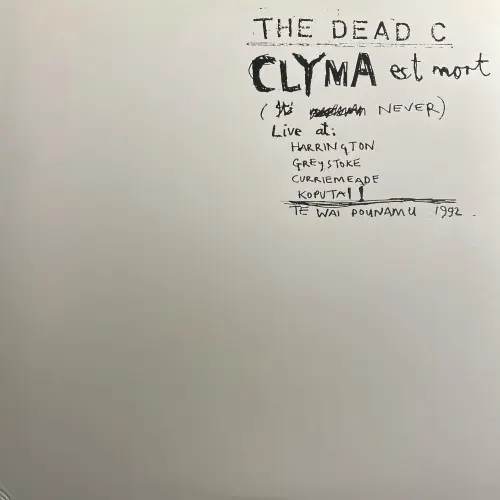 THE DEAD C
CLYMA est mort
( NEVER)
Live at:
HARRINGTON
GREYSTOKE
CURRIEMEADE
KOPUTAI!
TE WAI POUNAMU 1992.